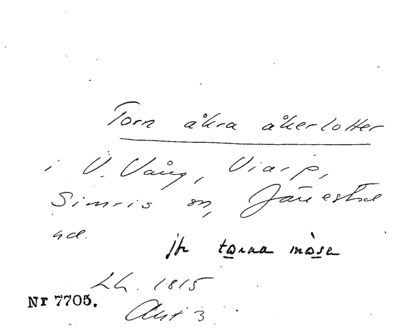 Torn åkra åkerlotter
i V. Vång, Viarp,
Simris sn, Järrestad
hd.
jfr tɷrna mosa
LL. 1815
Akt 3
Nr 7705.